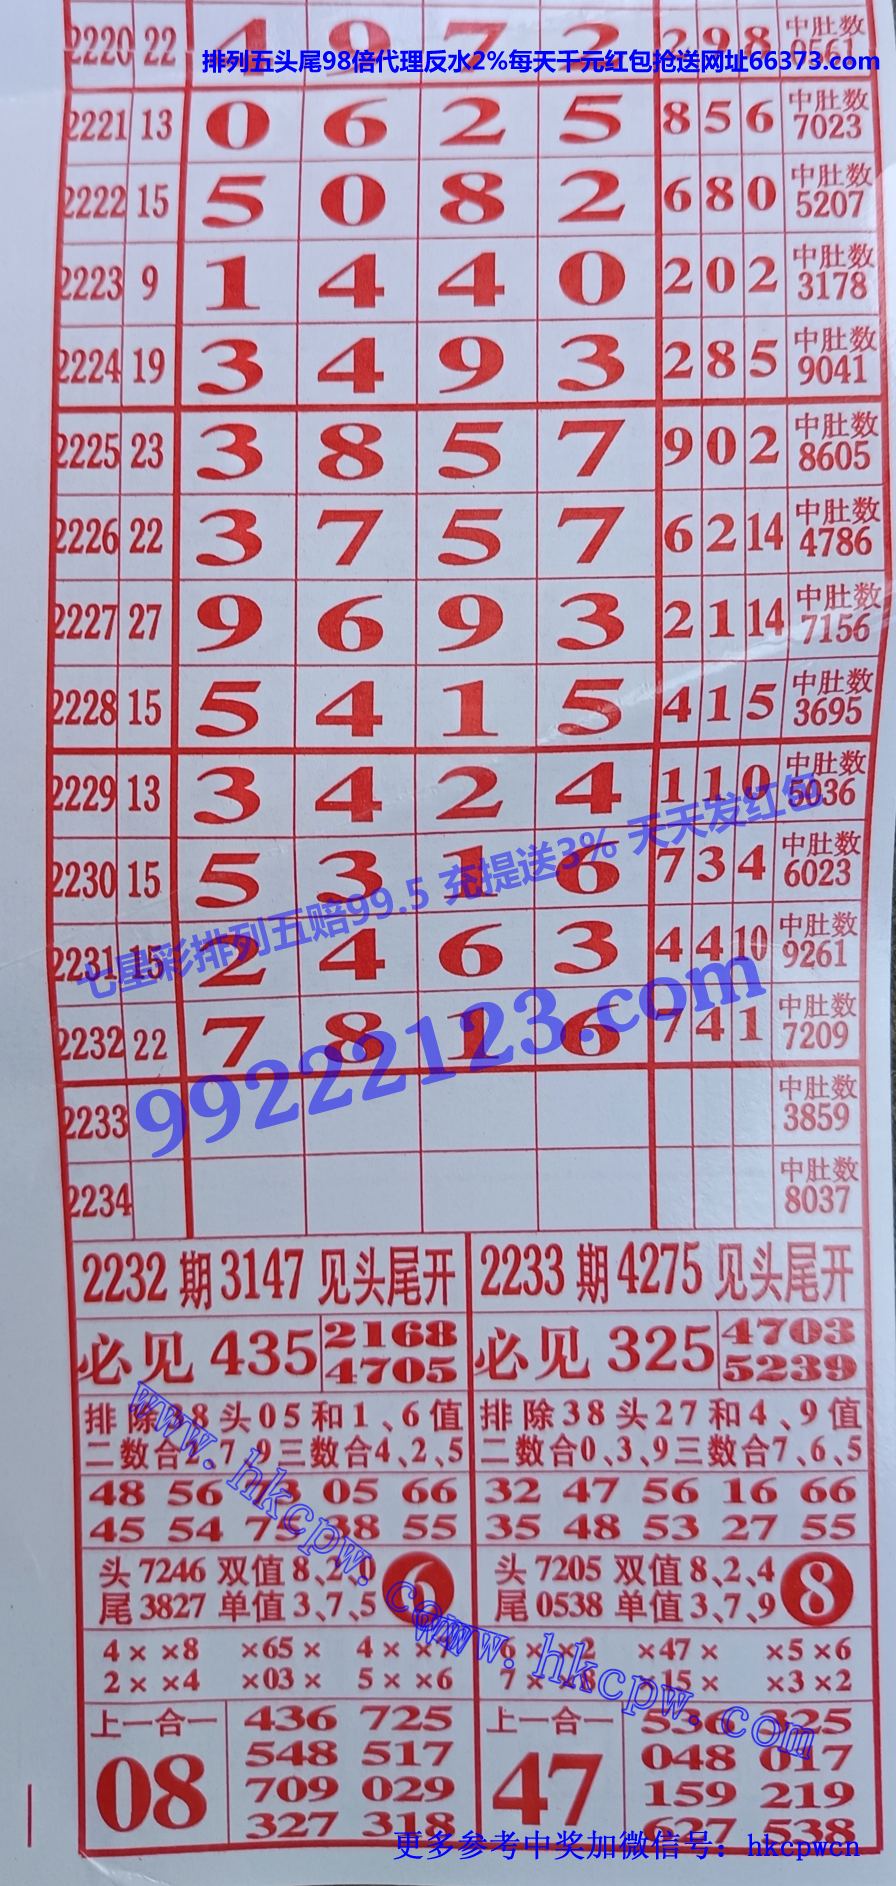 2220 22 4 9 7 2 2 9 8 中肚数 0561
排列五头尾98倍代理反水2%每天千元红包抢送网址66373.com
2221 13 0 6 2 5 8 5 6 中肚数 7023
2222 15 5 0 8 2 6 8 0 中肚数 5207
2223 9 1 4 4 0 2 0 2 中肚数 3178
2224 19 3 4 9 3 2 8 5 中肚数 9041
2225 23 3 8 5 7 9 0 2 中肚数 8605
2226 22 3 7 5 7 6 2 14 中肚数 4786
2227 27 9 6 9 3 2 1 14 中肚数 7156
2228 15 5 4 1 5 4 1 5 中肚数 3695
2229 13 3 4 2 4 1 1 0 中肚数 5036
2230 15 5 3 1 6 7 3 4 中肚数 6023
七星彩排列五赔99.5 充提送3% 天天发红包
2231 15 2 4 6 3 4 4 10 中肚数 9261
2232 22 7 8 1 6 7 4 1 中肚数 7209
99222123.com
2233 中肚数 3859
2234 中肚数 8037
2232期3147见头尾开
必见435 2168
4705
排除 8头05和1、6值
二数合 、7、9三数合4、2、5
48 56 73 05 66
45 54 7 38 55
头7246 双值8、2、0
尾3827 单值3、7、5
6
4××8 ×65× 4××
2××4 ×03× 5××6
上一合一
08
436 725
548 517
709 029
327 318
2233期4275见头尾开
必见325 4703
5239
排除38头27和4、9值
二数合0、3、9三数合7、6、5
32 47 56 16 66
35 48 53 27 55
头7205 双值8、2、4
尾0538 单值3、7、9
8
6××2 ×47× ×5×6
7××8 ×15× ×3×2
上一合一
47
536 325
048 017
159 219
627 538
www.hkcpw.com
www.hkcpw.com
更多参考中奖加微信号：hkcpwcn